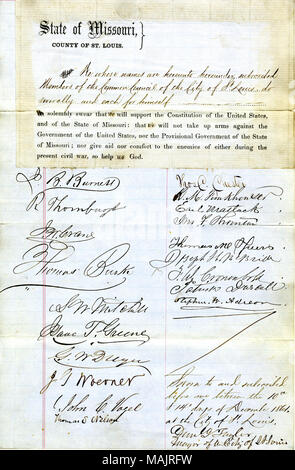 State of Missouri,
COUNTY OF ST. LOUIS.
We whose names are hereunto hereunder, subscribed
Members of the Common Council of the City of St Louis do
severally and each for himself
do solemnly swear that we will support the Constitution of the United States,
and of the State of Missouri; that we will not take up arms against the
Government of the United States, nor the Provisional Government of the
State of Missouri; nor give aid nor comfort to the enemies of either during the
present civil war, so help us God.
R Burnett
R Thornburgh
Evans
Thomas Burke
S. W. Mitchell
Isaac T. Greene
G. W. Dreyer
J G Woerner
John C. Vogel
Thomas
Geo. C.
Wm. F. Thornton
Thomas M.
Joseph
Patrick Driscoll
Stephen W. Adreon
Sworn to and subscribed
before me between the 10th
& 14th days of December 1861
at the City of St. Louis.
Dan. G. Taylor
Mayor of the City of St Louis
alamy
Image ID: MAJRFW
www.alamy.com